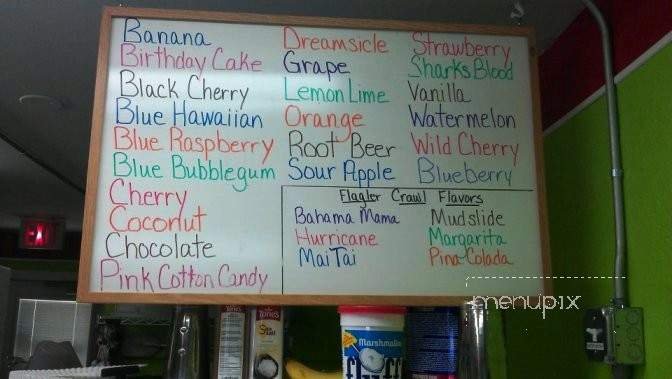 Banana
Birthday Cake
Black Cherry
Blue Hawaiian
Blue Raspberry
Blue Bubblegum
Cherry
Coconut
Chocolate
Pink Cotton Candy
Dreamsicle
Grape
Lemon Lime
Orange
Root Beer
Sour Apple
Strawberry
Sharks Blood
Vanilla
Watermelon
Wild Cherry
Blueberry
Flagler Crawl Flavors
Bahama Mama
Hurricane
Mai Tai
Mudslide
Margarita
Pina Colada
menupix
Marshmallow
fluff